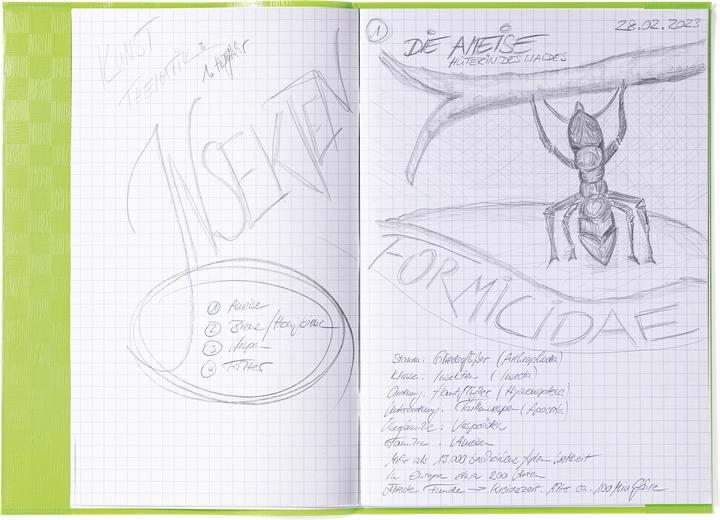 KUNST
THEMATIK
INSEKTEN
1 Ameise
2 Biene / Honigbiene
3 Wespe
4
1
28.02.2023
DIE AMEISE
HÜTERIN DES WALDES
FORMICIDAE
Stamm: Gliederfüßer (Arthropoda)
Klasse: Insekten (Insecta)
Ordnung: Hautflügler (Hymenoptera)
Unterordnung: Taillenwespen (Apocrita)
Überfamilie: Vespoidea
Familie: Ameisen
Mehr als 13.000 beschriebene Arten weltweit
In Europa etwa 200 Arten
Älteste Funde → Kreidezeit. Alter ca. 100 Mio Jahre